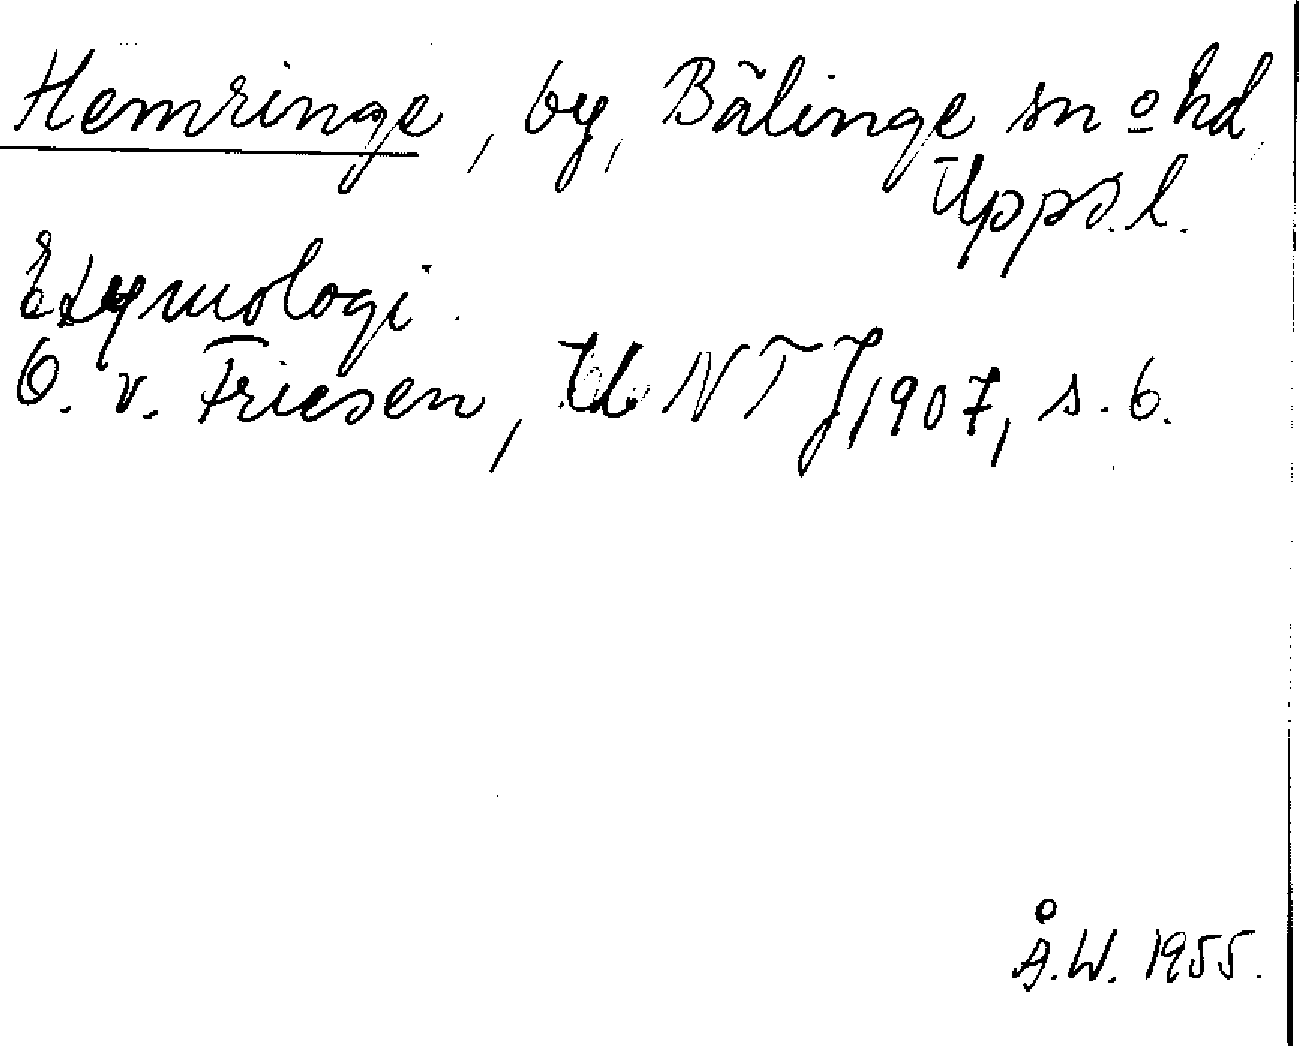 Hemringe, by, Bälinge sn o hd,
Upps.l.
Etymologi.
O. v. Friesen, NTJ 1907, s. 6.
Å.W. 1955.